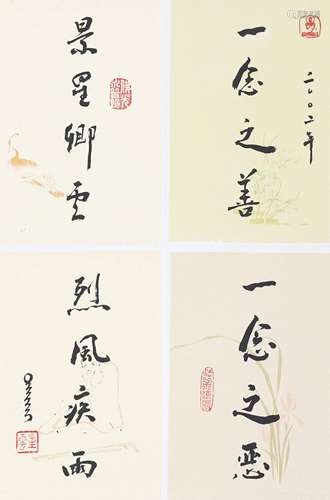 一念之善
二〇〇二年
景星卿雲
一念之惡
烈風疾雨